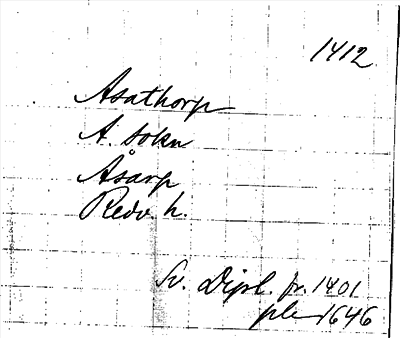 1412.
Asathorp
A. sokn
Åsarp
Redv. h.
Sv. Dipl. fr. 1401
1646